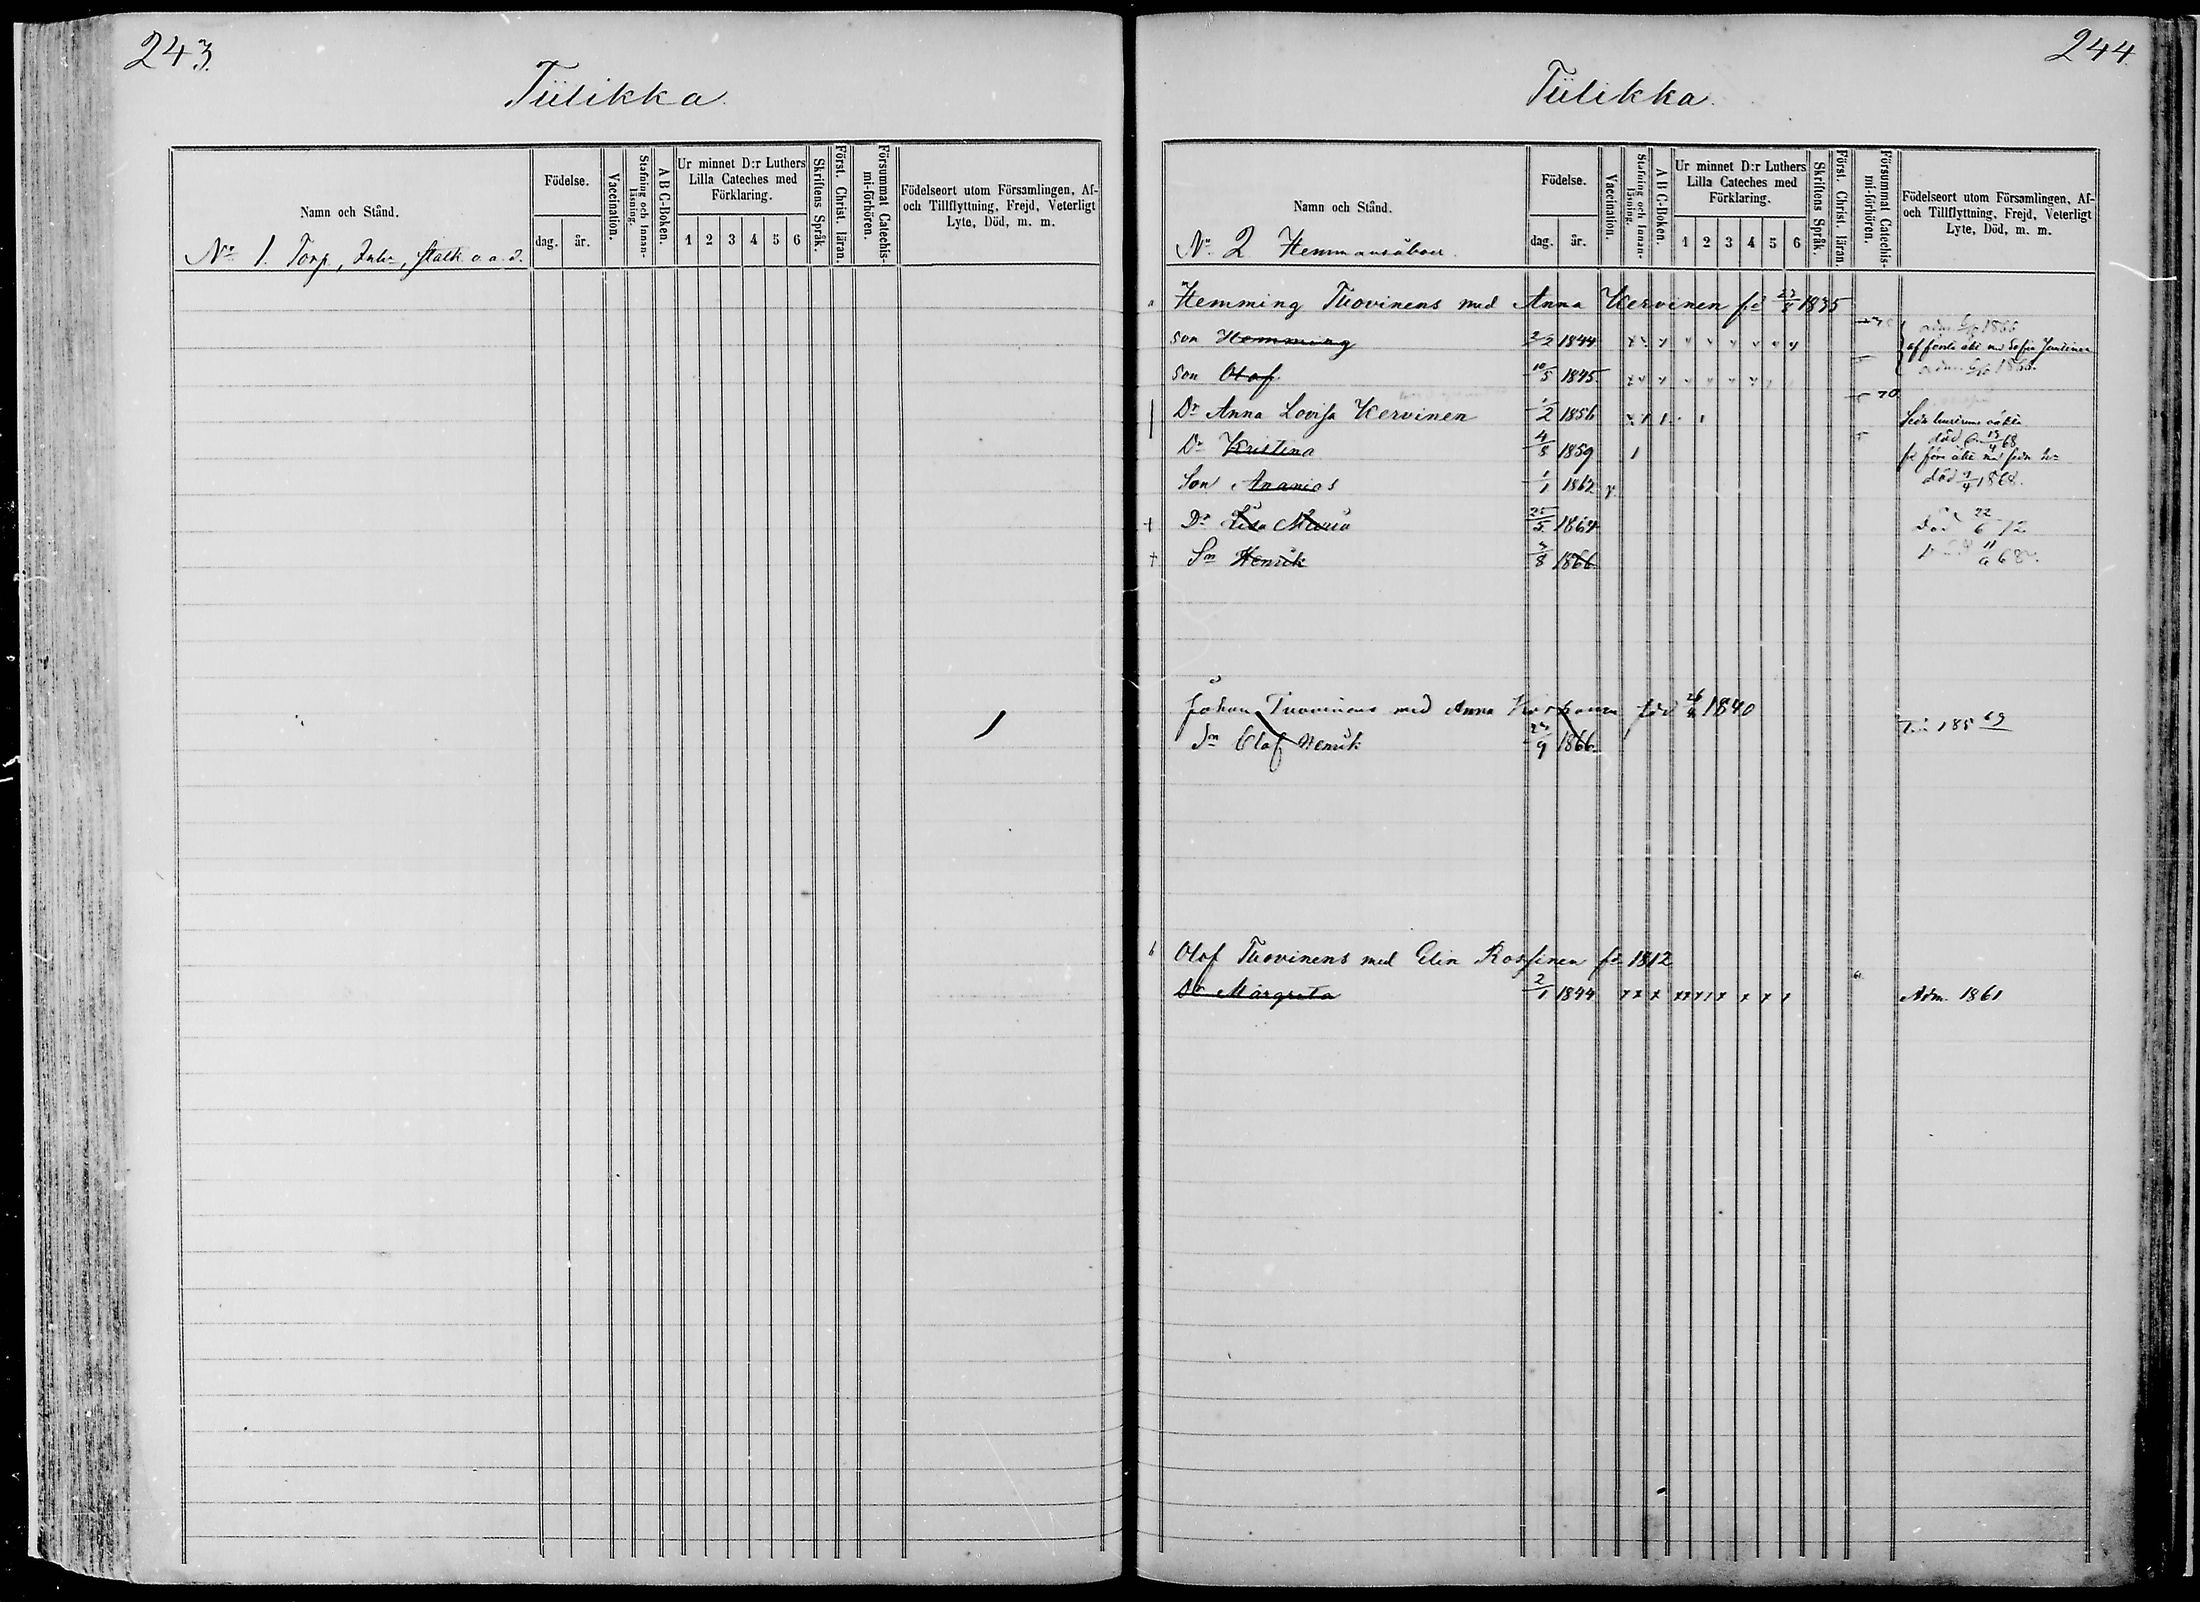 243.
Tiilikka.
Namn och Stånd.
Födelse.
dag.
år.
Vaccination.
Stafning och Innan-
läsning.
A B C-Boken.
Ur minnet D:r Luthers
Lilla Cateches med
Förklaring.
1 2 3 4 5 6
Skriftens Språk.
Först. Christ. läran.
Försummat Catechis-
mi-förhören.
Födelseort utom Församlingen, Af-
och Tillflyttning, Frejd, Veterligt
Lyte, Död, m. m.
No 1. Torp, Inh:, statk o.a.d.
244.
Tiilikka.
Namn och Stånd.
Födelse.
dag.
år.
Vaccination.
Stafning och Innan-
läsning.
A B C-Boken.
Ur minnet D:r Luthers
Lilla Cateches med
Förklaring.
1 2 3 4 5 6
Skriftens Språk.
Först. Christ. läran.
Försummat Catechis-
mi-förhören.
Födelseort utom Församlingen, Af-
och Tillflyttning, Frejd, Veterligt
Lyte, Död, m. m.
No 2 Hemmansåboer.
a Hemming Tuovinens med Anna Kervinen fd 1835
son Hemming 2/2 1844 1866
son Olof 10/5 1845
Dr Anna Lovisa Kervinen 1/2 1856 70
Dr Kristina 4/8 1859 död 68
Son Ananias 1/1 1862 död 1868.
† Dr Lisa Maria 25/5 1864 Död 22/6 72
† Sn Henrik 8 1866 11 68.
Johan Tuovinens med Anna född 26 1840
Sn Olof Henrik 9 1866 185 69
b Olof Tuovinens med Elin Rossinen fd 1812
Dr Margreta 2/1 1844 Adm. 1861